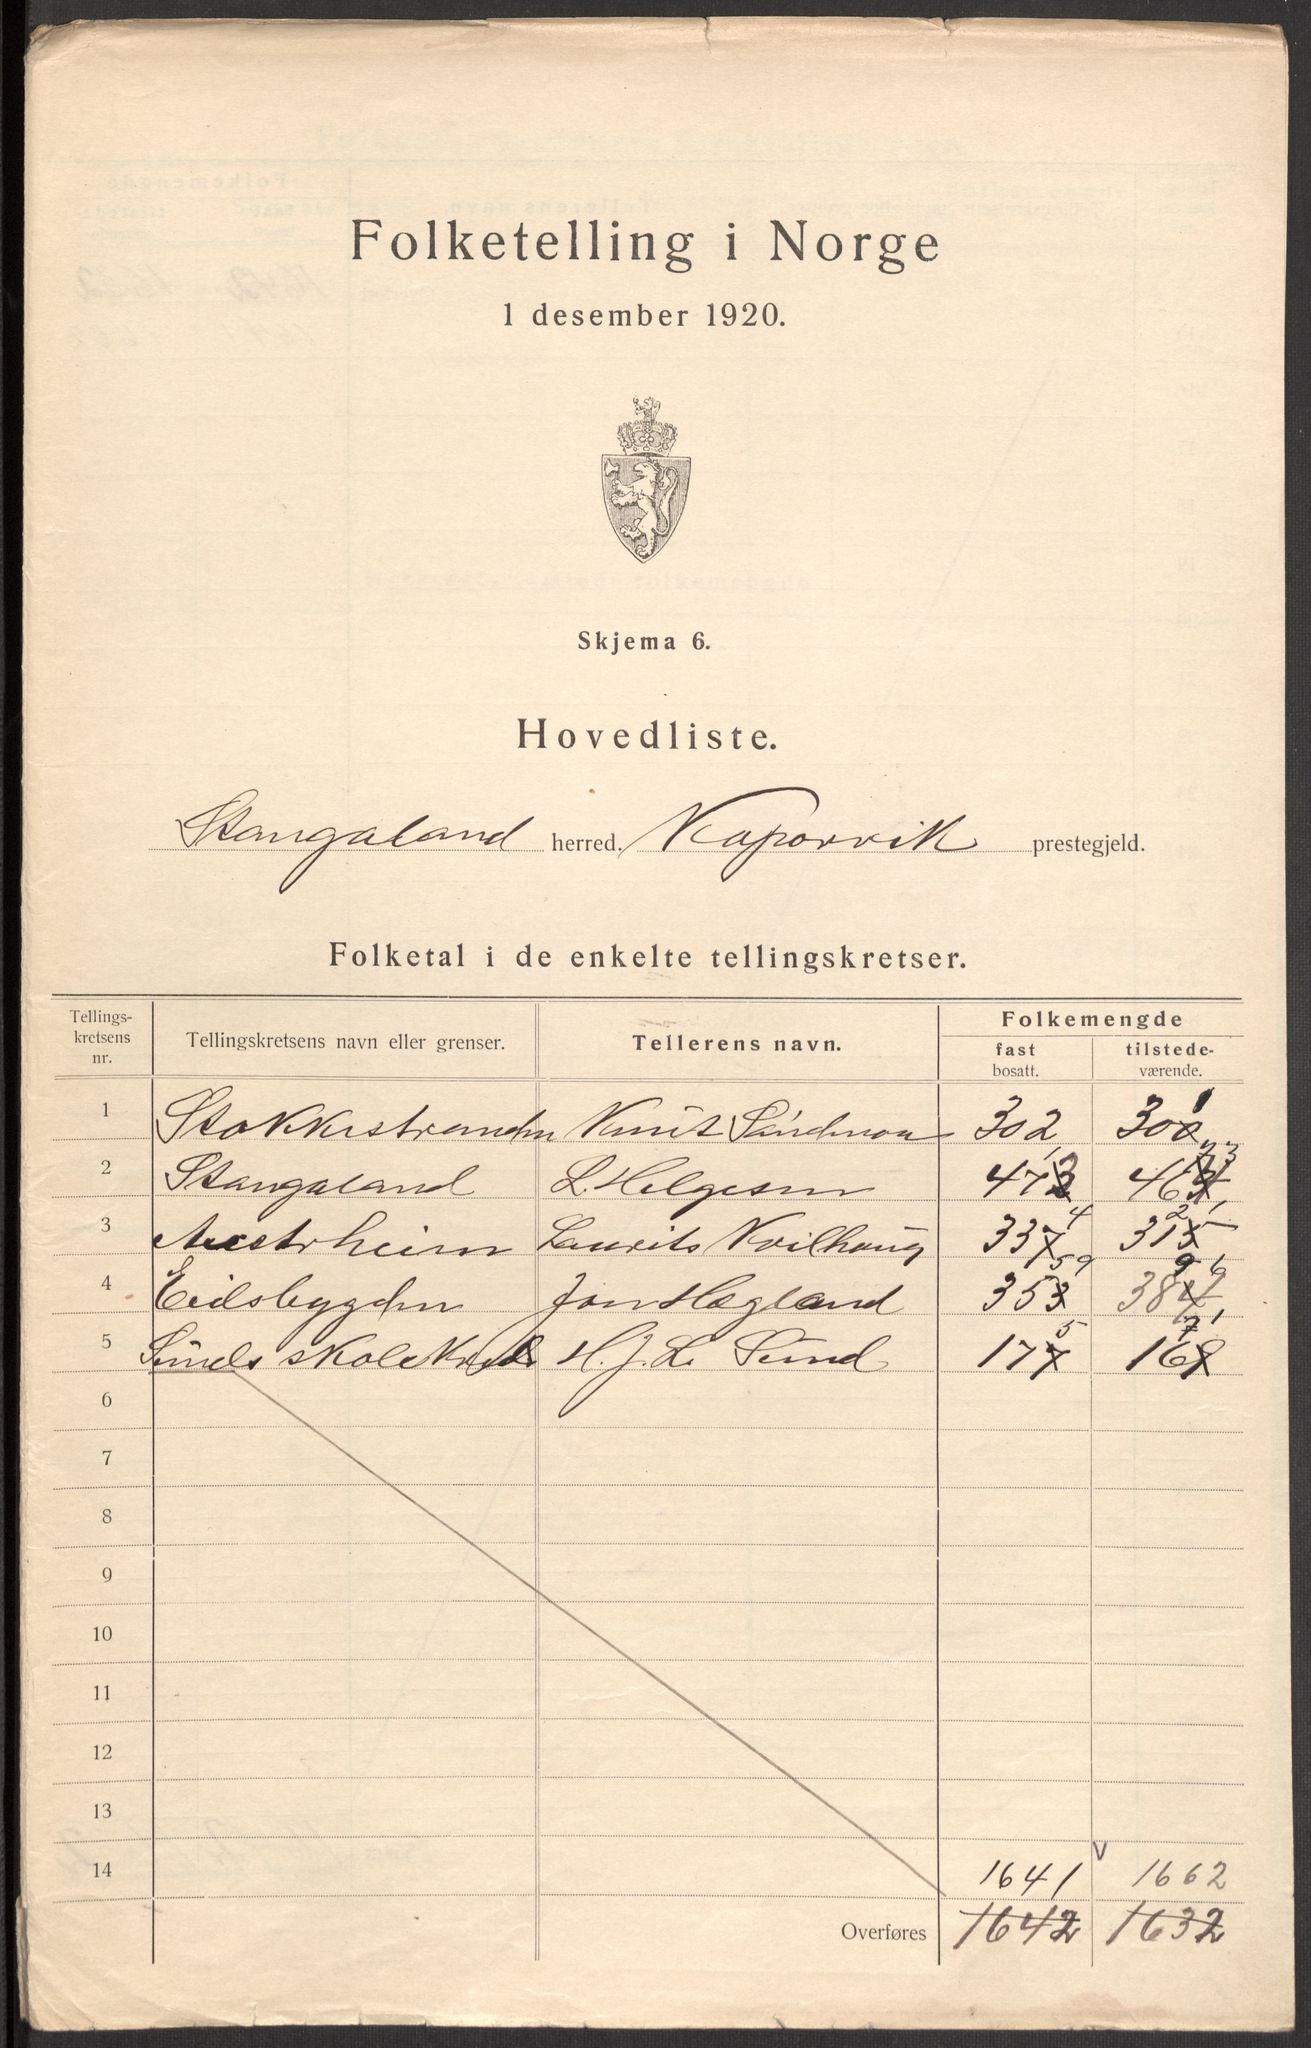 Folketelling i Norge
1 desember 1920.
Skjema 6.
Hovedliste.
Stangaland herred. Kopervik prestegjeld.
Folketal i de enkelte tellingskretser.
Tellings-kretsens nr. Tellingskretsens navn eller grenser. Tellerens navn. Folkemengde
fast bosatt. tilstede-værende.
1 Stokkastranden Knut Sandmoa 302 301
2 Stangaland L. Helgesen 47
3 Austrheim Laurits Kvilhaug 334 31
4 Eidsbygden Jon Hægland 35 38
5 Sunds skolekreds H. J. L. Sund 175 16
6
7
8
9
10
11
12
13
14 1641 1662
Overføres 1642 1632